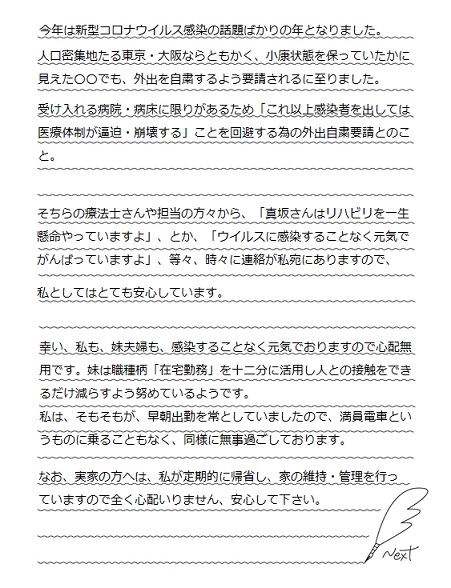 今年は新型コロナウイルス感染の話題ばかりの年となりました。
人口密集地たる東京・大阪ならともかく、小康状態を保っていたかに
見えた〇〇でも、外出を自粛するよう要請されるに至りました。
受け入れる病院・病床に限りがあるため「これ以上感染者を出しては
医療体制が逼迫・崩壊する」ことを回避する為の外出自粛要請とのこ
と。
そちらの療法士さんや担当の方々から、「真坂さんはリハビリを一生
懸命やっていますよ」、とか、「ウイルスに感染することなく元気で
がんばっていますよ」、等々、時々に連絡が私宛にありますので、
私としてはとても安心しています。
幸い、私も、妹夫婦も、感染することなく元気でおりますので心配無
用です。妹は職種柄「在宅勤務」を十二分に活用し人との接触をでき
るだけ減らすよう努めているようです。
私は、そもそもが、早朝出勤を常としていましたので、満員電車とい
うものに乗ることもなく、同様に無事過ごしております。
なお、実家の方へは、私が定期的に帰省し、家の維持・管理を行っ
ていますので全く心配いりません、安心して下さい。
Next